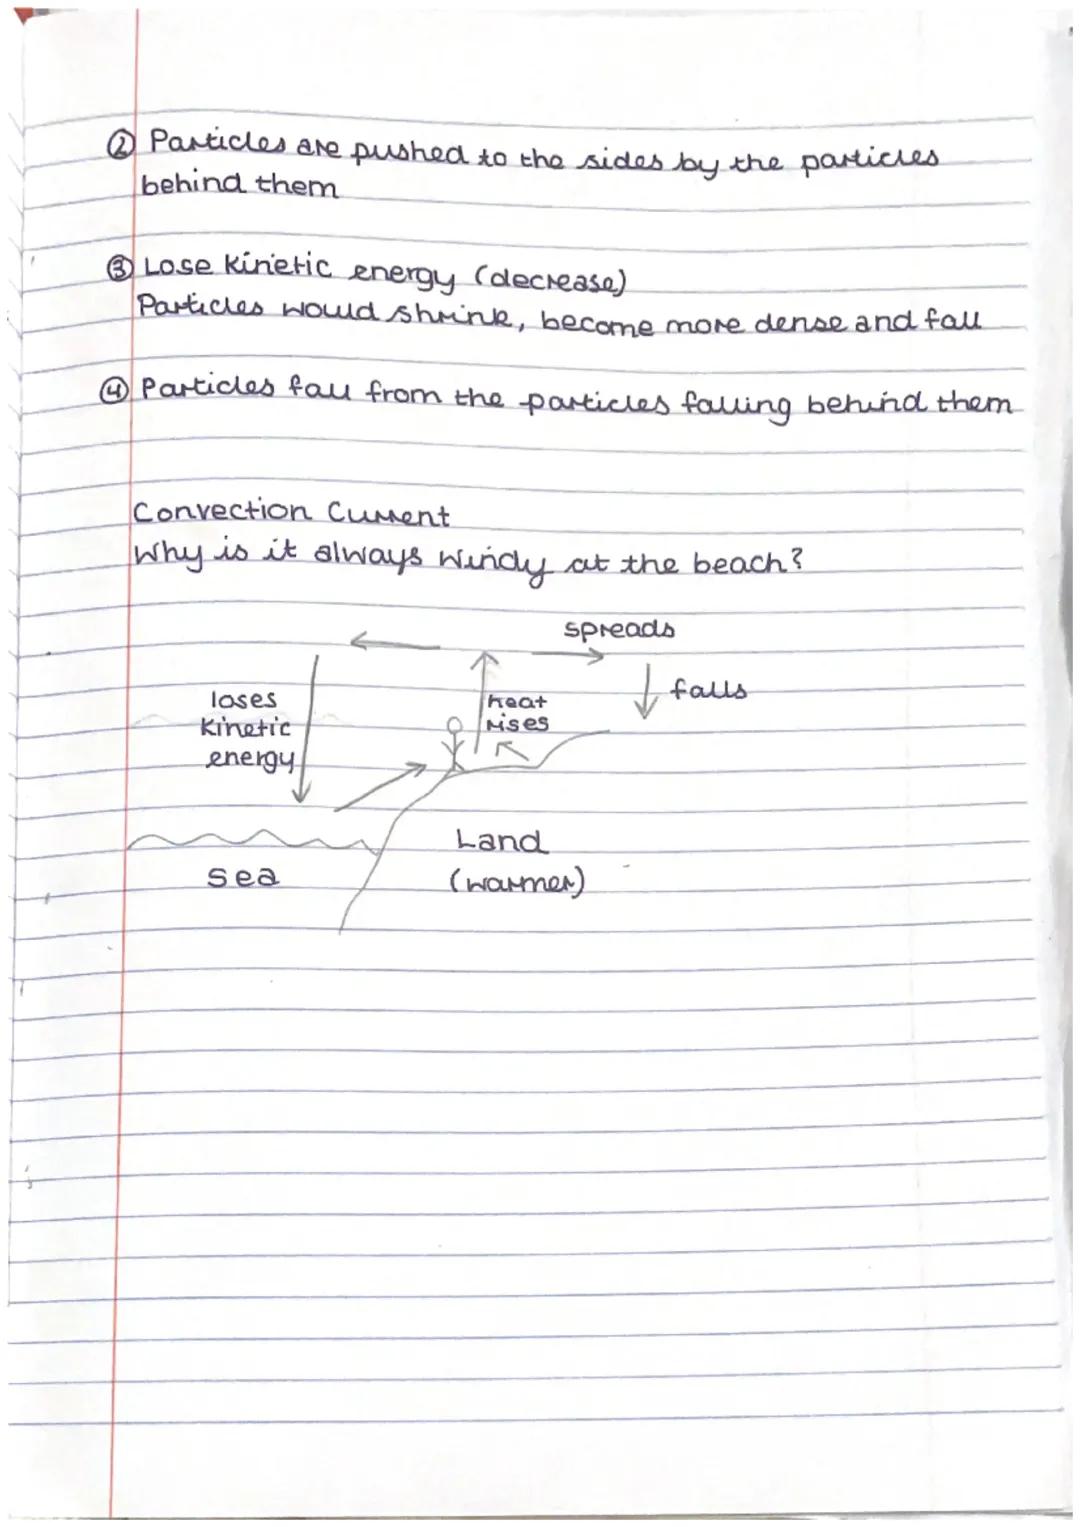 ② Particles are pushed to the sides by the particles
behind them
③ Lose kinetic energy (decrease)
Particles would shrink, become more dense and fall
④ Particles fall from the particles falling behind them
Convection Current
Why is it always windy at the beach?
spreads
falls
loses
kinetic
energy
heat
rises
Land
(warmer)
Sea